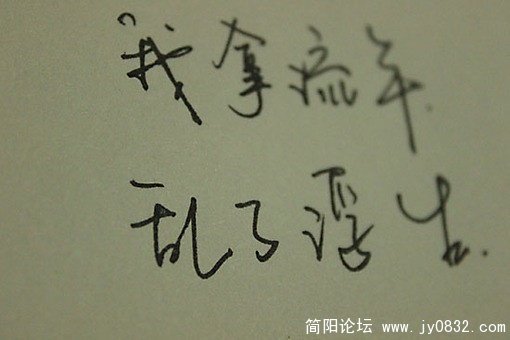 "我拿流年.
乱了浮生.
简阳论坛 www.jy0832.com